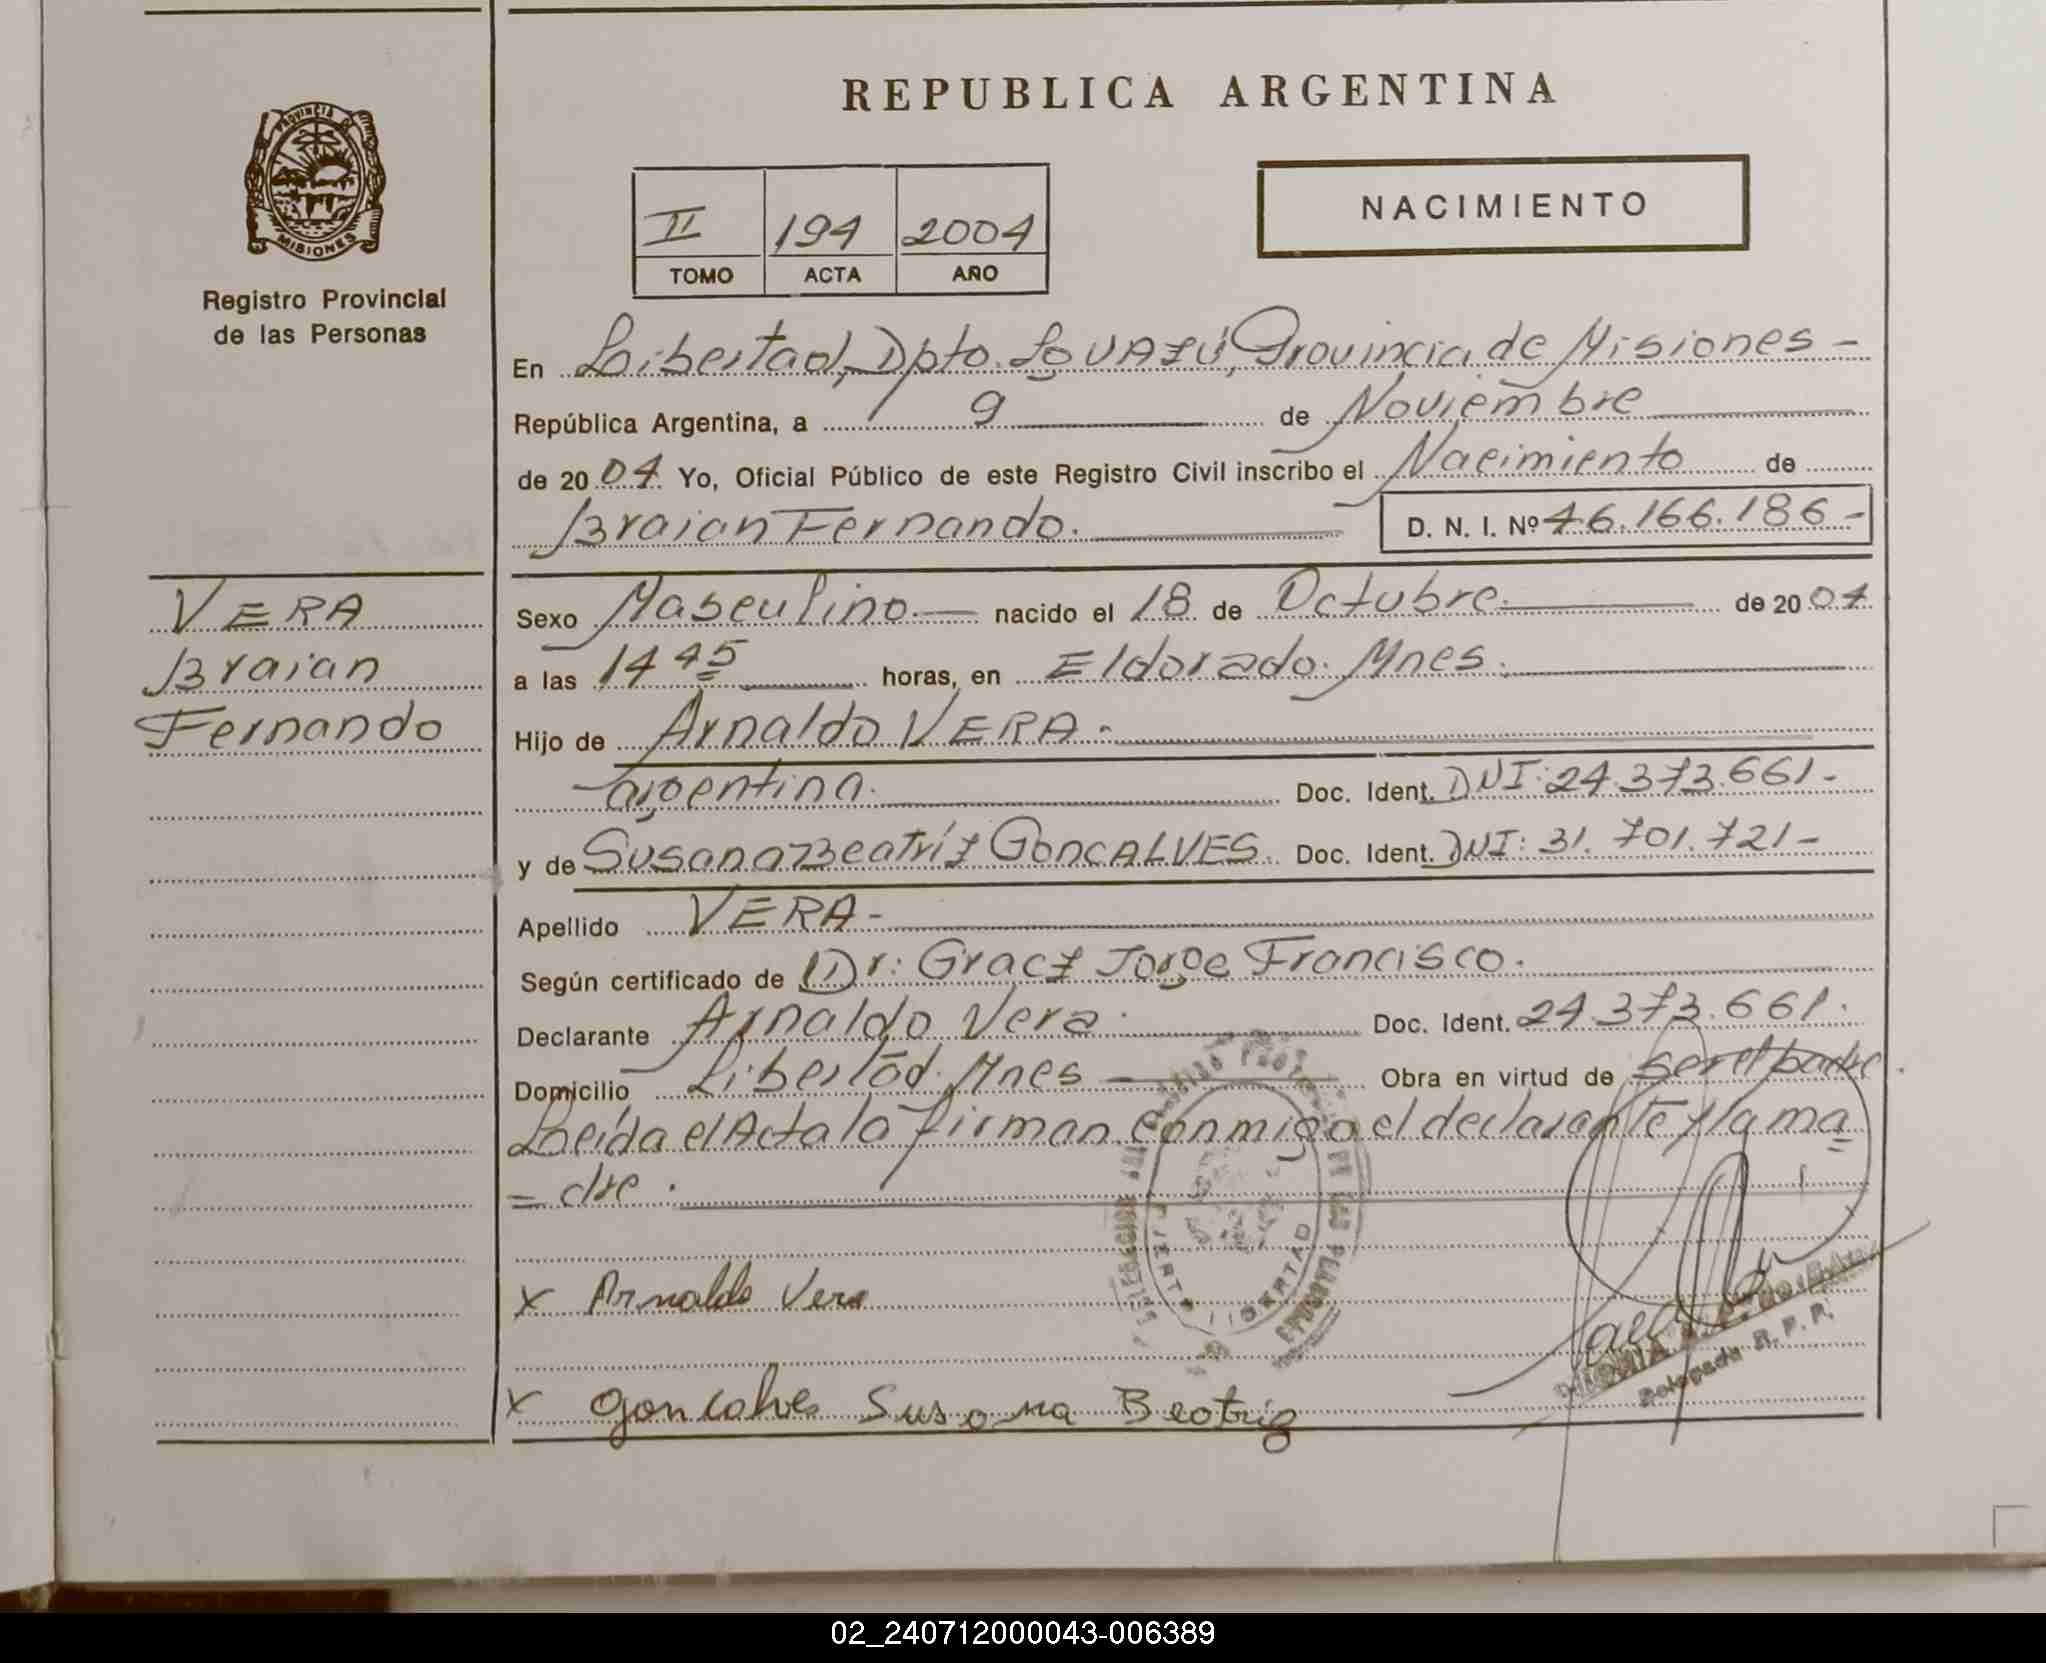 REPUBLICA ARGENTINA
PROVINCIA DE
MISIONES
Registro Provincial
de las Personas
II 194 2004
TOMO ACTA AÑO
NACIMIENTO
En Libertad, Dpto. Iguazú, Provincia de Misiones -
República Argentina, a 9 de Noviembre
de 2004 Yo, Oficial Público de este Registro Civil inscribo el Nacimiento de
Braian Fernando. D. N. I. Nº 46.166.186-
VERA
Braian
Fernando
Sexo Masculino nacido el 18 de Octubre de 2004
a las 14 45 horas, en Eldorado. Mnes.
Hijo de Arnaldo VERA -
argentina. Doc. Ident. DNI: 24.373.661-
y de Susana Beatríz GONCALVES. Doc. Ident. DNI: 31.701.721-
Apellido VERA-
Según certificado de Dr: Gracz Jorge Francisco.
Declarante Arnaldo Vera. Doc. Ident. 24.373.661.
Domicilio Libertad. Mnes - Obra en virtud de ser el padre.
Leída el Acta la firman conmigo el declarante y la ma
= dre.
x Arnaldo Vera
LIBERTAD
Delegada R. P. P.
x Goncalves Susana Beatriz
02_240712000043-006389